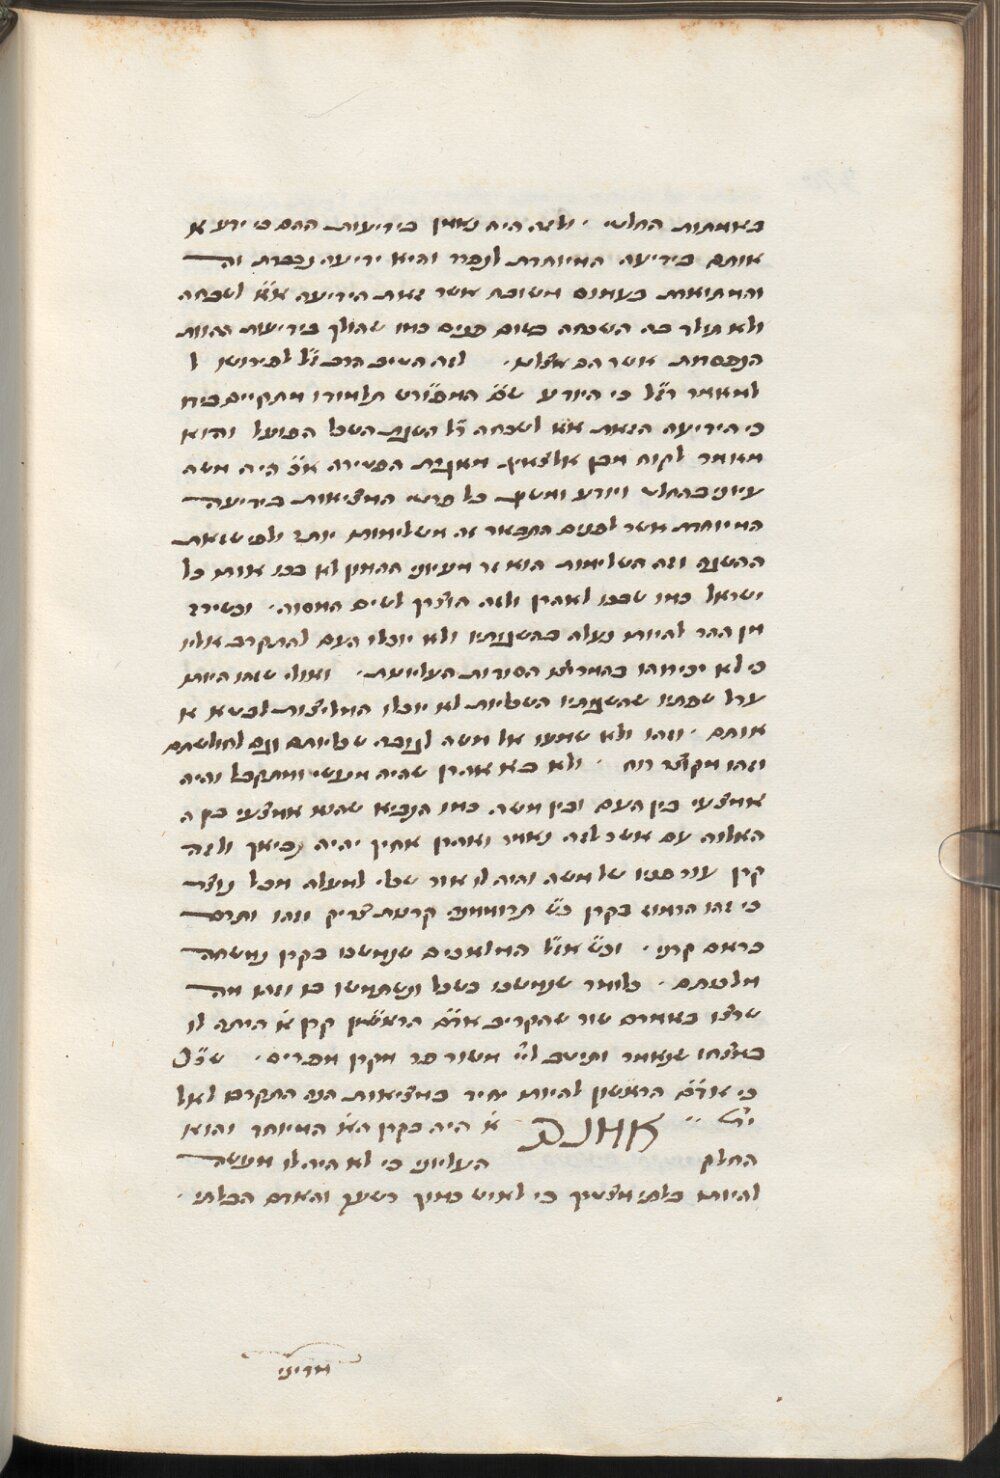 באמתות החלט׳ · ולזה היה נאמן בידיעות ההם כי ידע א
אותם בידיעה המיוחדת לנפרד והיא ידיעה נבדלת וה
והמתואות בעצמם משובח אשר זאת הידיעה א״א לשכחה
ולא תולד בה השכחה בשום פנים כמו שהולך בידיעות ההוות
הנפסדות אשר הם אצלנו · לזה השיב הרב ז״ל לפירושו ל
למאמר רז״ל כי היודע שם המפורש תלמודו מתקיים בידו
כי הידיעה הזאת א״א לשכחה ר״ל השגת השכל הפועל והוא
מאמר לקוח מבן אלצאיג מאגרת הפטירה א״כ היה משה
עיוני בהחלט ויודע ומשיג כל פרטי המציאות בידיעה
המיוחדת אשר לפנים התבאר זה משלימות יותר ולפי שזאת
ההשגה וזה השלימות הוא זר מעיוני ההמון לא בכו אותו כל
ישראל כמו שבכו לאהרן ולזה הוצרך לשים המסוה · וכשירד
מן ההר להיות נעלה בהשגותיו ולא יוכלו העם להתקרב אליו
כי לא יכילוהו בהמולת הסודות העליונות · ואולי שזהו היות
ערל שפתיו שהשגותיו השכליות לא יוכלו המליצות לבטא א
אותם · וזהו ולא שמעו אל משה לגובה שכליותם וגם לחולשתם
וזהו מקוצר רוח · ולא בא אהרן שהיה מעשי ומתקבל והיה
אמצעי בין העם ובין משה כמו הנביא שהוא אמצעי בין ה
האלוה עם אשר לזה נאמר ואהרן אחיך יהיה נביאך ולזה
קרן עור פניו של משה והיה לו אור שכלי למעלה מכל נוצר
כי זהו הרמוז בקרן כ״ש תרוממנה קרנות צדיק וזהו ותרם
כראם קרני · וכ״ש אז״ל המלאכים שנמשכו בקרן נמשכה
מלכותם · כלומר שנמשכו בשכל ונשתמשו בו וזהו מה
שרצו באמרם שור שהקריב אד״ם הראשון קרן א׳ היתה לו
במצחו שנאמר ותיטב לי״י משור פר מקרן מפרים · ש״ל
כי אד״ם הראשון להיות יחיד במציאות הנה התקרבו לאל
ית׳ ״ א׳ היה בקרן הא׳ המיוחד והוא
החלק העליוני כי לא היה לו מעשה
להיות בלתי מצטרך כי לאיש כמוך רשעך והאדם הבלתי ·
מדיני